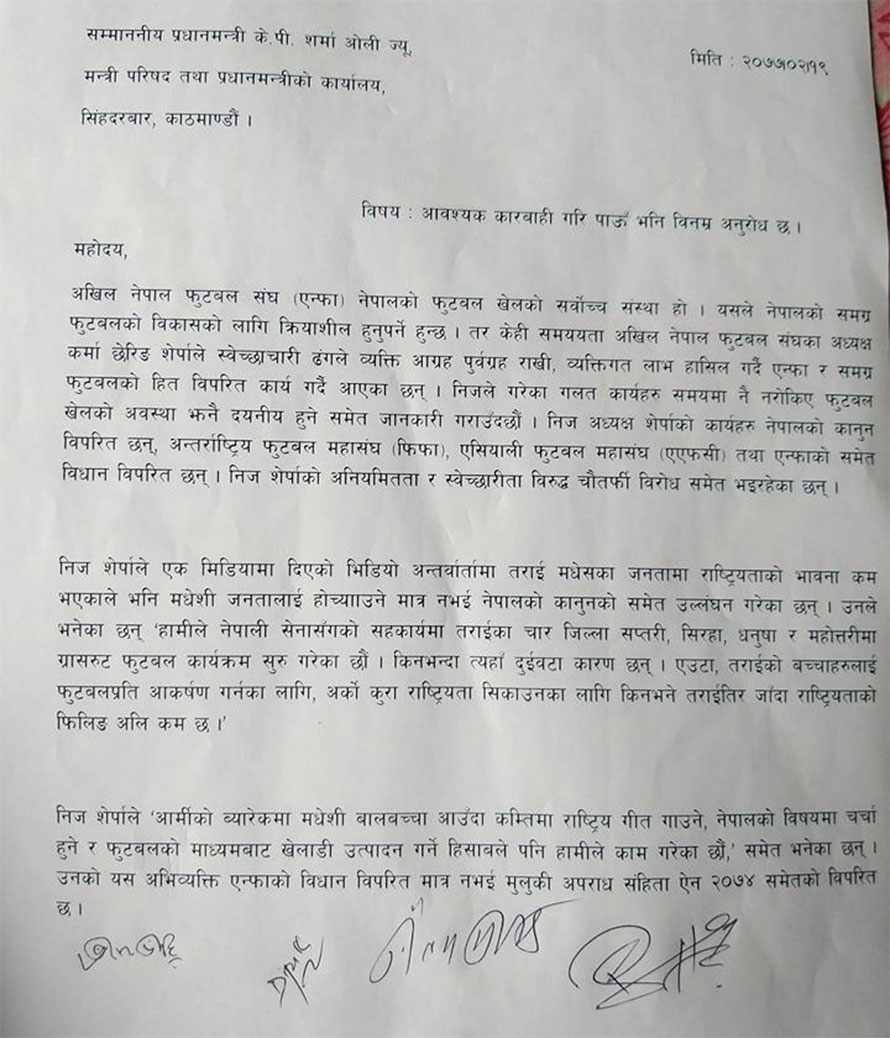 सम्माननीय प्रधानमन्त्री के.पी. शर्मा ओली ज्यू,
मिति : २०७७।०२।१९
मन्त्री परिषद तथा प्रधानमन्त्रीको कार्यालय,
सिंहदरबार, काठमाण्डौं ।
विषय : आवश्यक कारबाही गरि पाऊँ भनि विनम्र अनुरोध छ ।
महोदय,
अखिल नेपाल फुटबल संघ (एन्फा) नेपालको फुटबल खेलको सर्वोच्च संस्था हो । यसले नेपालको समग्र
फुटबलको विकासको लागि क्रियाशील हुनुपर्ने हुन्छ । तर केही समययता अखिल नेपाल फुटबल संघका अध्यक्ष
कर्मा छेरिङ शेर्पाले स्वेच्छाचारी ढंगले व्यक्ति आग्रह पुर्वग्रह राखी, व्यक्तिगत लाभ हासिल गर्दै एन्फा र समग्र
फुटबलको हित विपरित कार्य गर्दै आएका छन् । निजले गरेका गलत कार्यहरु समयमा नै नरोकिए फुटबल
खेलको अवस्था झनै दयनीय हुने समेत जानकारी गराउँदछौं । निज अध्यक्ष शेर्पाको कार्यहरु नेपालको कानुन
विपरित छन्, अन्तर्राष्ट्रिय फुटबल महासंघ (फिफा), एसियाली फुटबल महासंघ (एएफसी) तथा एन्फाको समेत
विधान विपरित छन् । निज शेर्पाको अनियमितता र स्वेच्छारीता विरुद्ध चौतर्फी विरोध समेत भइरहेका छन् ।
निज शेर्पाले एक मिडियामा दिएको भिडियो अन्तर्वार्तामा तराई मधेसका जनतामा राष्ट्रियताको भावना कम
भएकाले भनि मधेशी जनतालाई होच्यााउने मात्र नभई नेपालको कानुनको समेत उल्लंघन गरेका छन् । उनले
भनेका छन् 'हामीले नेपाली सेनासँगको सहकार्यमा तराईका चार जिल्ला सप्तरी, सिरहा, धनुषा र महोत्तरीमा
ग्रासरुट फुटबल कार्यक्रम सुरु गरेका छौं । किनभन्दा त्यहाँ दुईवटा कारण छन् । एउटा, तराईको बच्चाहरुलाई
फुटबलप्रति आकर्षण गर्नका लागि, अर्को कुरा राष्ट्रियता सिकाउनका लागि किनभने तराईतिर जाँदा राष्ट्रियताको
फिलिङ अलि कम छ ।'
निज शेर्पाले 'आर्मीको ब्यारेकमा मधेशी बालबच्चा आउँदा कम्तिमा राष्ट्रिय गीत गाउने, नेपालको विषयमा चर्चा
हुने र फुटबलको माध्यमबाट खेलाडी उत्पादन गर्ने हिसाबले पनि हामीले काम गरेका छौं,' समेत भनेका छन् ।
उनको यस अभिव्यक्ति एन्फाको विधान विपरित मात्र नभई मुलुकी अपराध संहिता ऐन २०७४ समेतको विपरित
छ ।